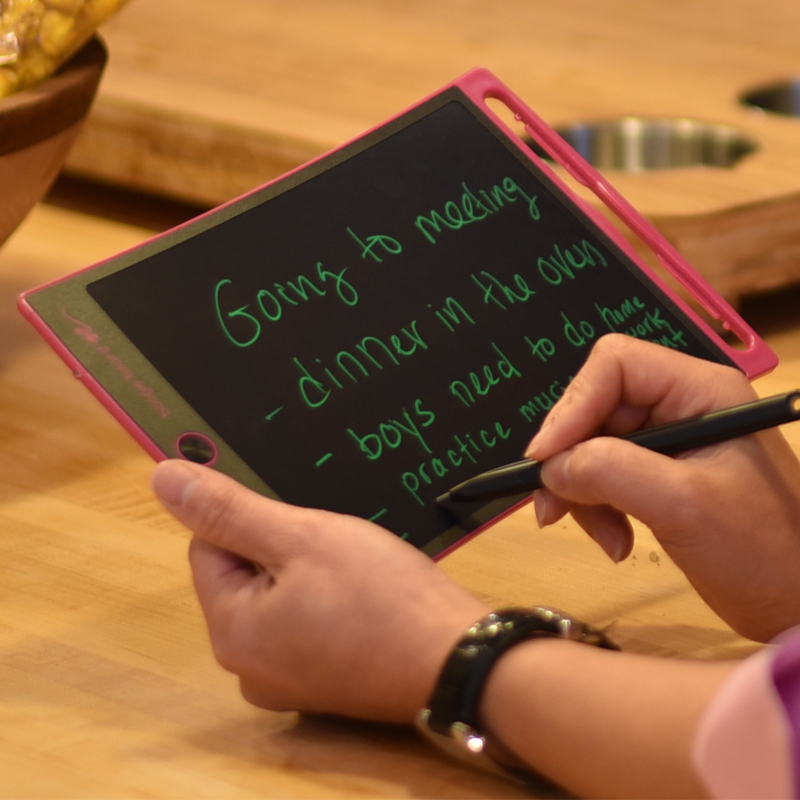 Going to meeting
- dinner in the oven
- boys need to do home
work
- practice
-